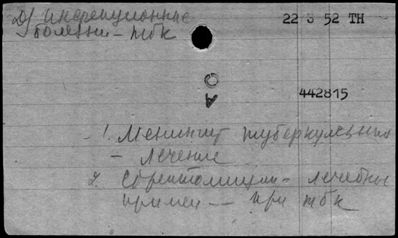 Д) Инфекционные
болезни - тбк
22 3 52 ТН
442815
1. Менингит туберкулезный
- лечение
2. Стрептомицин - лечебн.
примен — при тбк